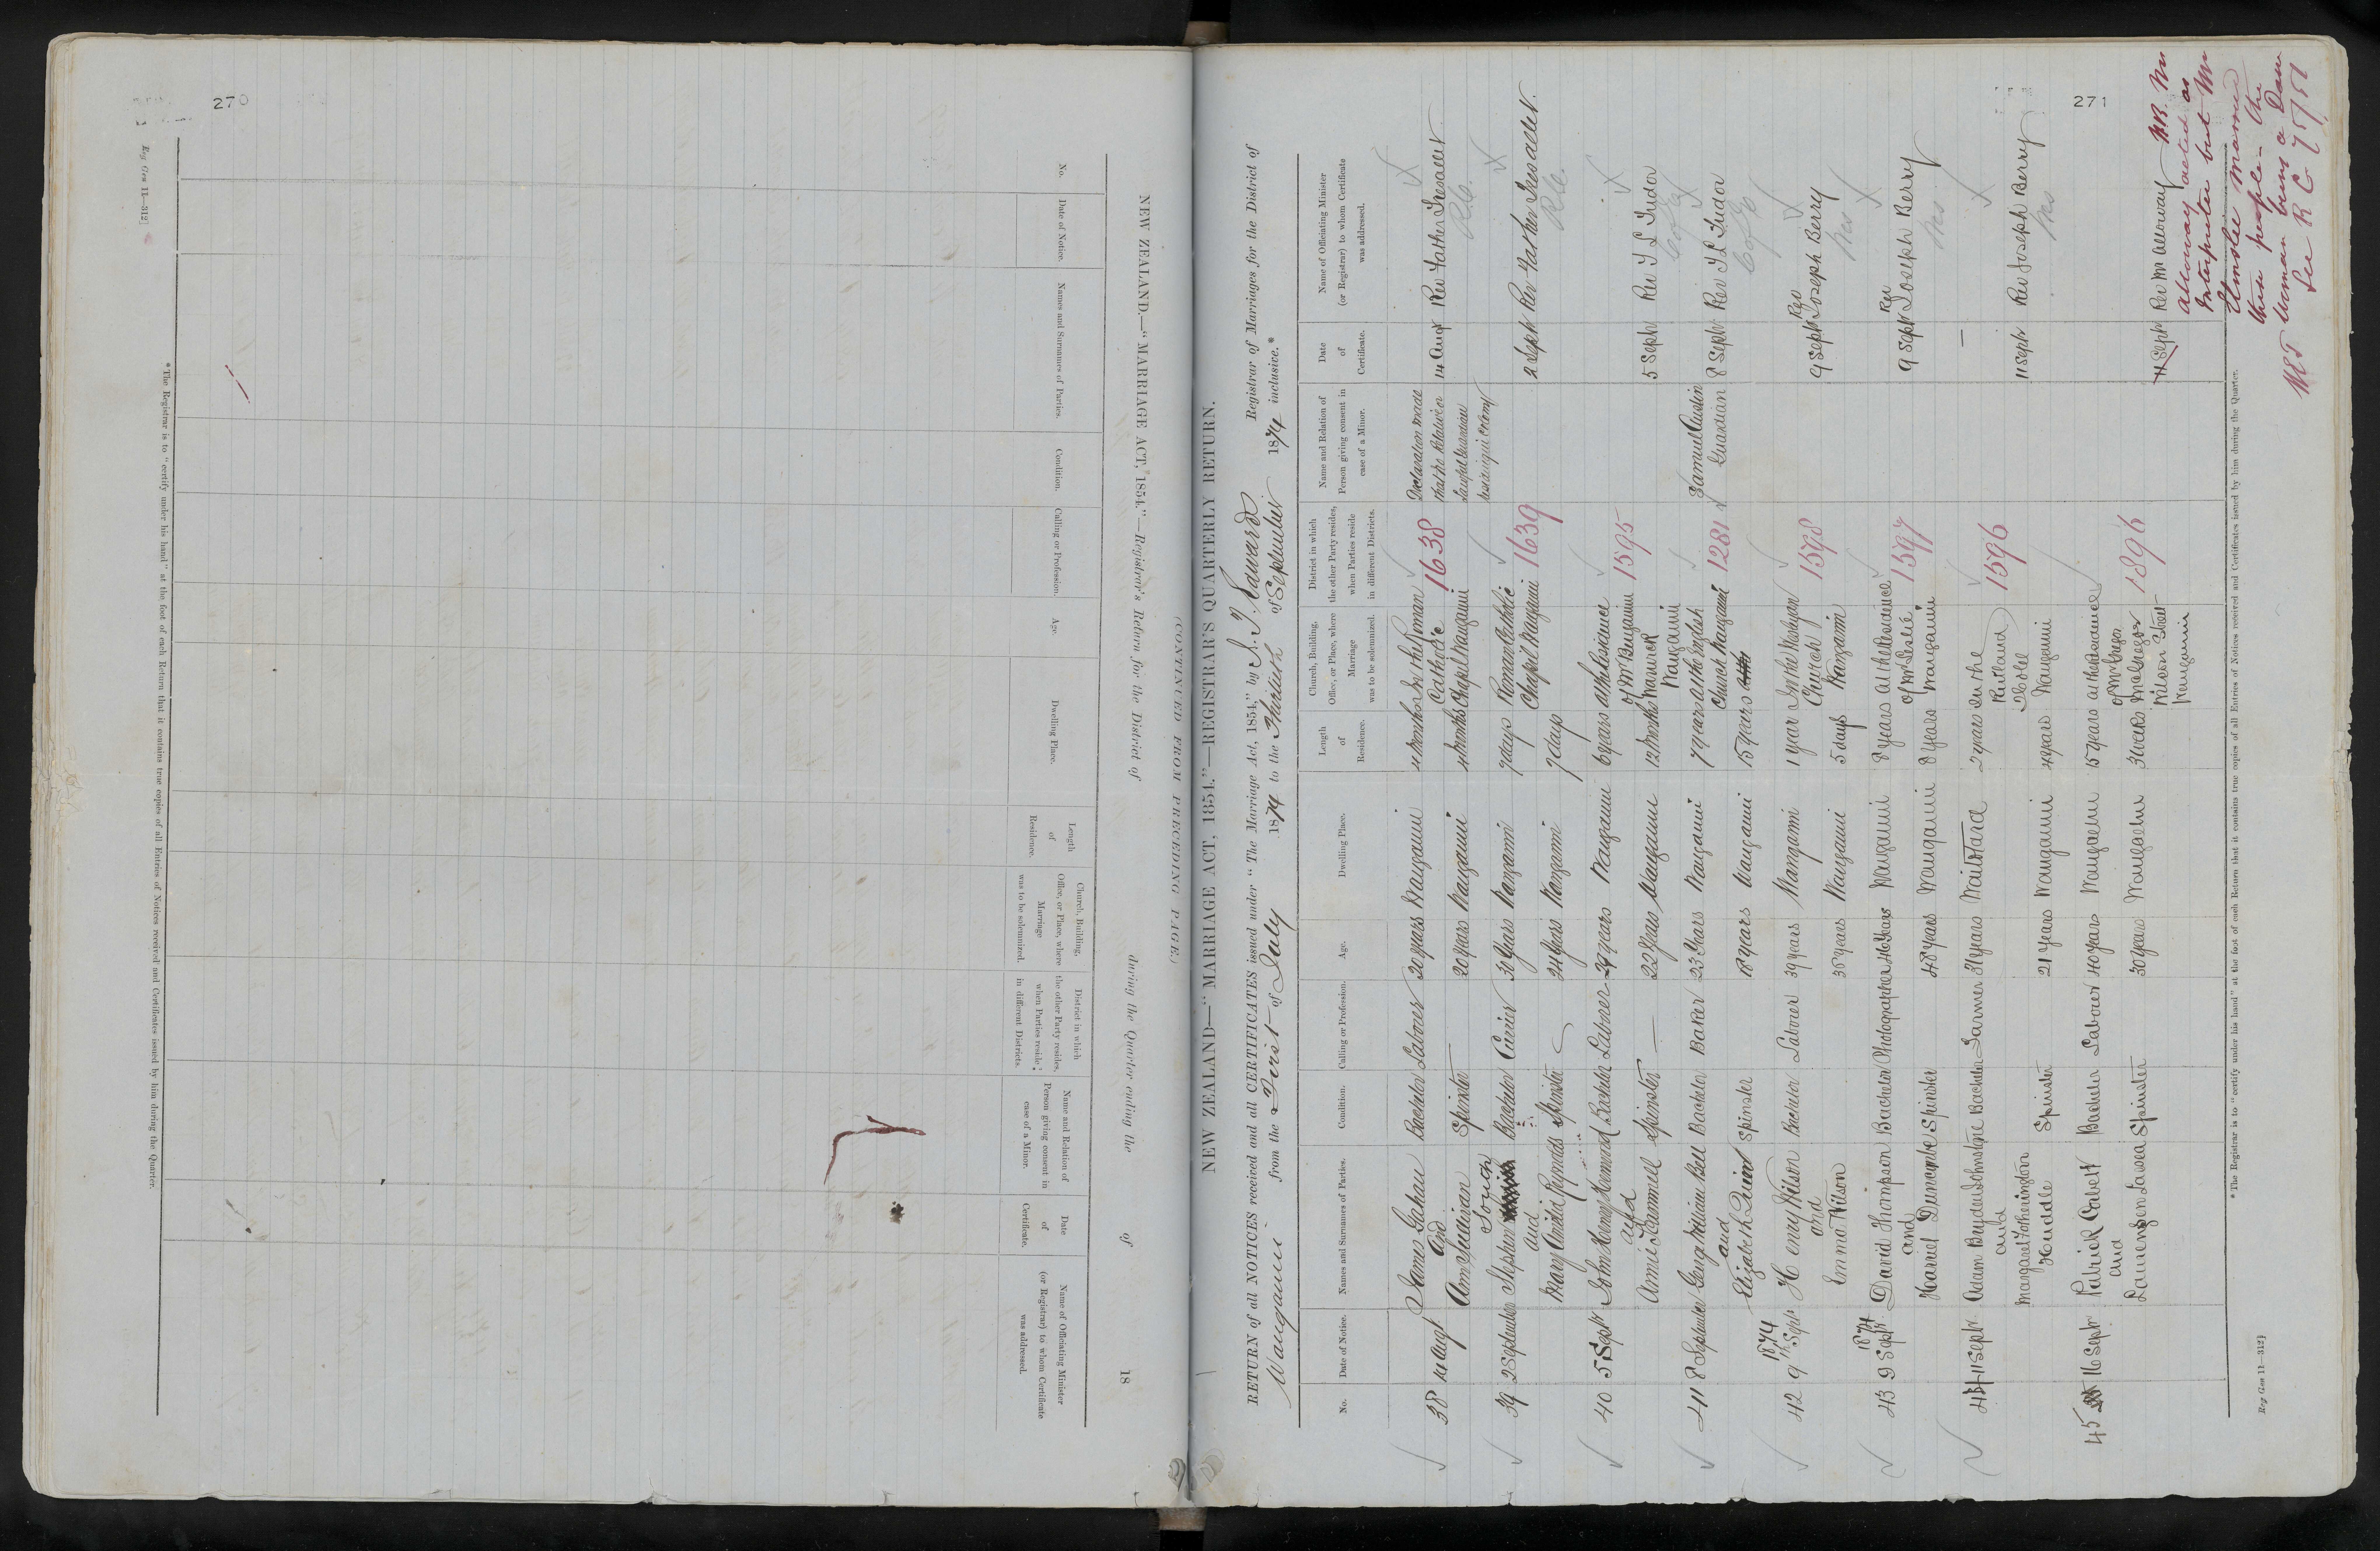 270
Reg Gen 11—312]
NEW ZEALAND.—"MARRIAGE ACT, 1854."—Registrar's Return for the District of during the Quarter ending the of 18
(CONTINUED FROM PRECEDING PAGE.)
No.
Date of Notice.
Names and Surnames of Parties.
Condition.
Calling or Profession.
Age.
Dwelling Place.
Length of Residence.
Church, Building, Office, or Place, where Marriage was to be solemnized.
District in which the other Party resides, when Parties reside in different Districts.
Name and Relation of Person giving consent in case of a Minor.
Date of Certificate.
Name of Officiating Minister (or Registrar) to whom Certificate was addressed.
* The Registrar is to "certify under his hand" at the foot of each Return that it contains true copies of all Entries of Notices received and Certificates issued by him during the Quarter.
NEW ZEALAND—"MARRIAGE ACT, 1854."—REGISTRAR'S QUARTERLY RETURN.
RETURN of all NOTICES received and all CERTIFICATES issued under "The Marriage Act, 1854," by Edward Registrar of Marriages for the District of
Wanganui from the First of July 1874 to the Thirtieth of September 1874 inclusive.*
No.
Date of Notice.
Names and Surnames of Parties.
Condition.
Calling or Profession.
Age.
Dwelling Place.
Length of Residence.
Church, Building, Office, or Place, where Marriage was to be solemnized.
District in which the other Party resides, when Parties reside in different Districts.
Name and Relation of Person giving consent in case of a Minor.
Date of Certificate.
Name of Officiating Minister (or Registrar) to whom Certificate was addressed.
38 14 Augt James Gahan Bachelor Labourer 30 years Wanganui 4 months In the Roman Catholic Chapel Wanganui 1638 Declaration made that no Relative or lawful Guardian 14 Augt Rev Father
and
Ann Sullivan Spinster 20 years Wanganui 4 months
R.C.
39 2 September Stephen Bachelor 30 years Wanganui 7 days Roman Catholic Chapel Wanganui 1639 2 Sept Rev Father
and
Mary Reynolds Spinster 24 years Wanganui 7 days
R.C.
40 5 Sept John Henry Bachelor 29 years Wanganui 6 years at the Residence of Mr Wanganui 1595 5 Sept Rev T L Tudor
and
Annie Spinster 22 years Wanganui 12 months
C of E
41 8 September George William Bell Bachelor Baker 23 years Wanganui 7 years at the English Church Wanganui 1281 Samuel Austin Guardian 8 Sept Rev T L Tudor
and
Elizabeth Quint Spinster 18 years Wanganui 15 years
C of E
42 9th Sept 1874 Henry Wilson Bachelor Laborer 39 years Wanganui 1 year In the Wesleyan Church Wanganui 1598 9 Sept Rev Joseph Berry
and
Emma Wilson 35 years Wanganui 5 days
Wes
43 9 Sept 1874 David Thompson Bachelor Photographer 46 years Wanganui 8 years at the Residence of Mr Leslie Wanganui 1597 9 Sept Rev Joseph Berry
and
Harriet Duncombe Spinster 48 years Wanganui 8 years
Wes
44 11 Sept Adam Bryden Johnstone Bachelor Farmer 31 years Waitotara 2 years In the Rutland Hotel Wanganui 1596 11 Sept Rev Joseph Berry
and
Margaret Fotheringham Huddle Spinster 21 years Wanganui 4 years
Wes
45 16 Sept Patrick Cabett Bachelor Laborer 40 years Wangaehu 15 years at the Residence of Mr McGregor Wilson Street Wanganui 1896 Sept Rev Mr Alloway
and
Spinster 30 years Wangaehu 3 weeks
N.B. Mr Alloway acted as Interpreter but Mr Elmslie married these people — the woman being a Dane
See R G 75/51
* The Registrar is to "certify under his hand" at the foot of each Return that it contains true copies of all Entries of Notices received and Certificates issued by him during the Quarter.
Reg Gen 11—312]
271